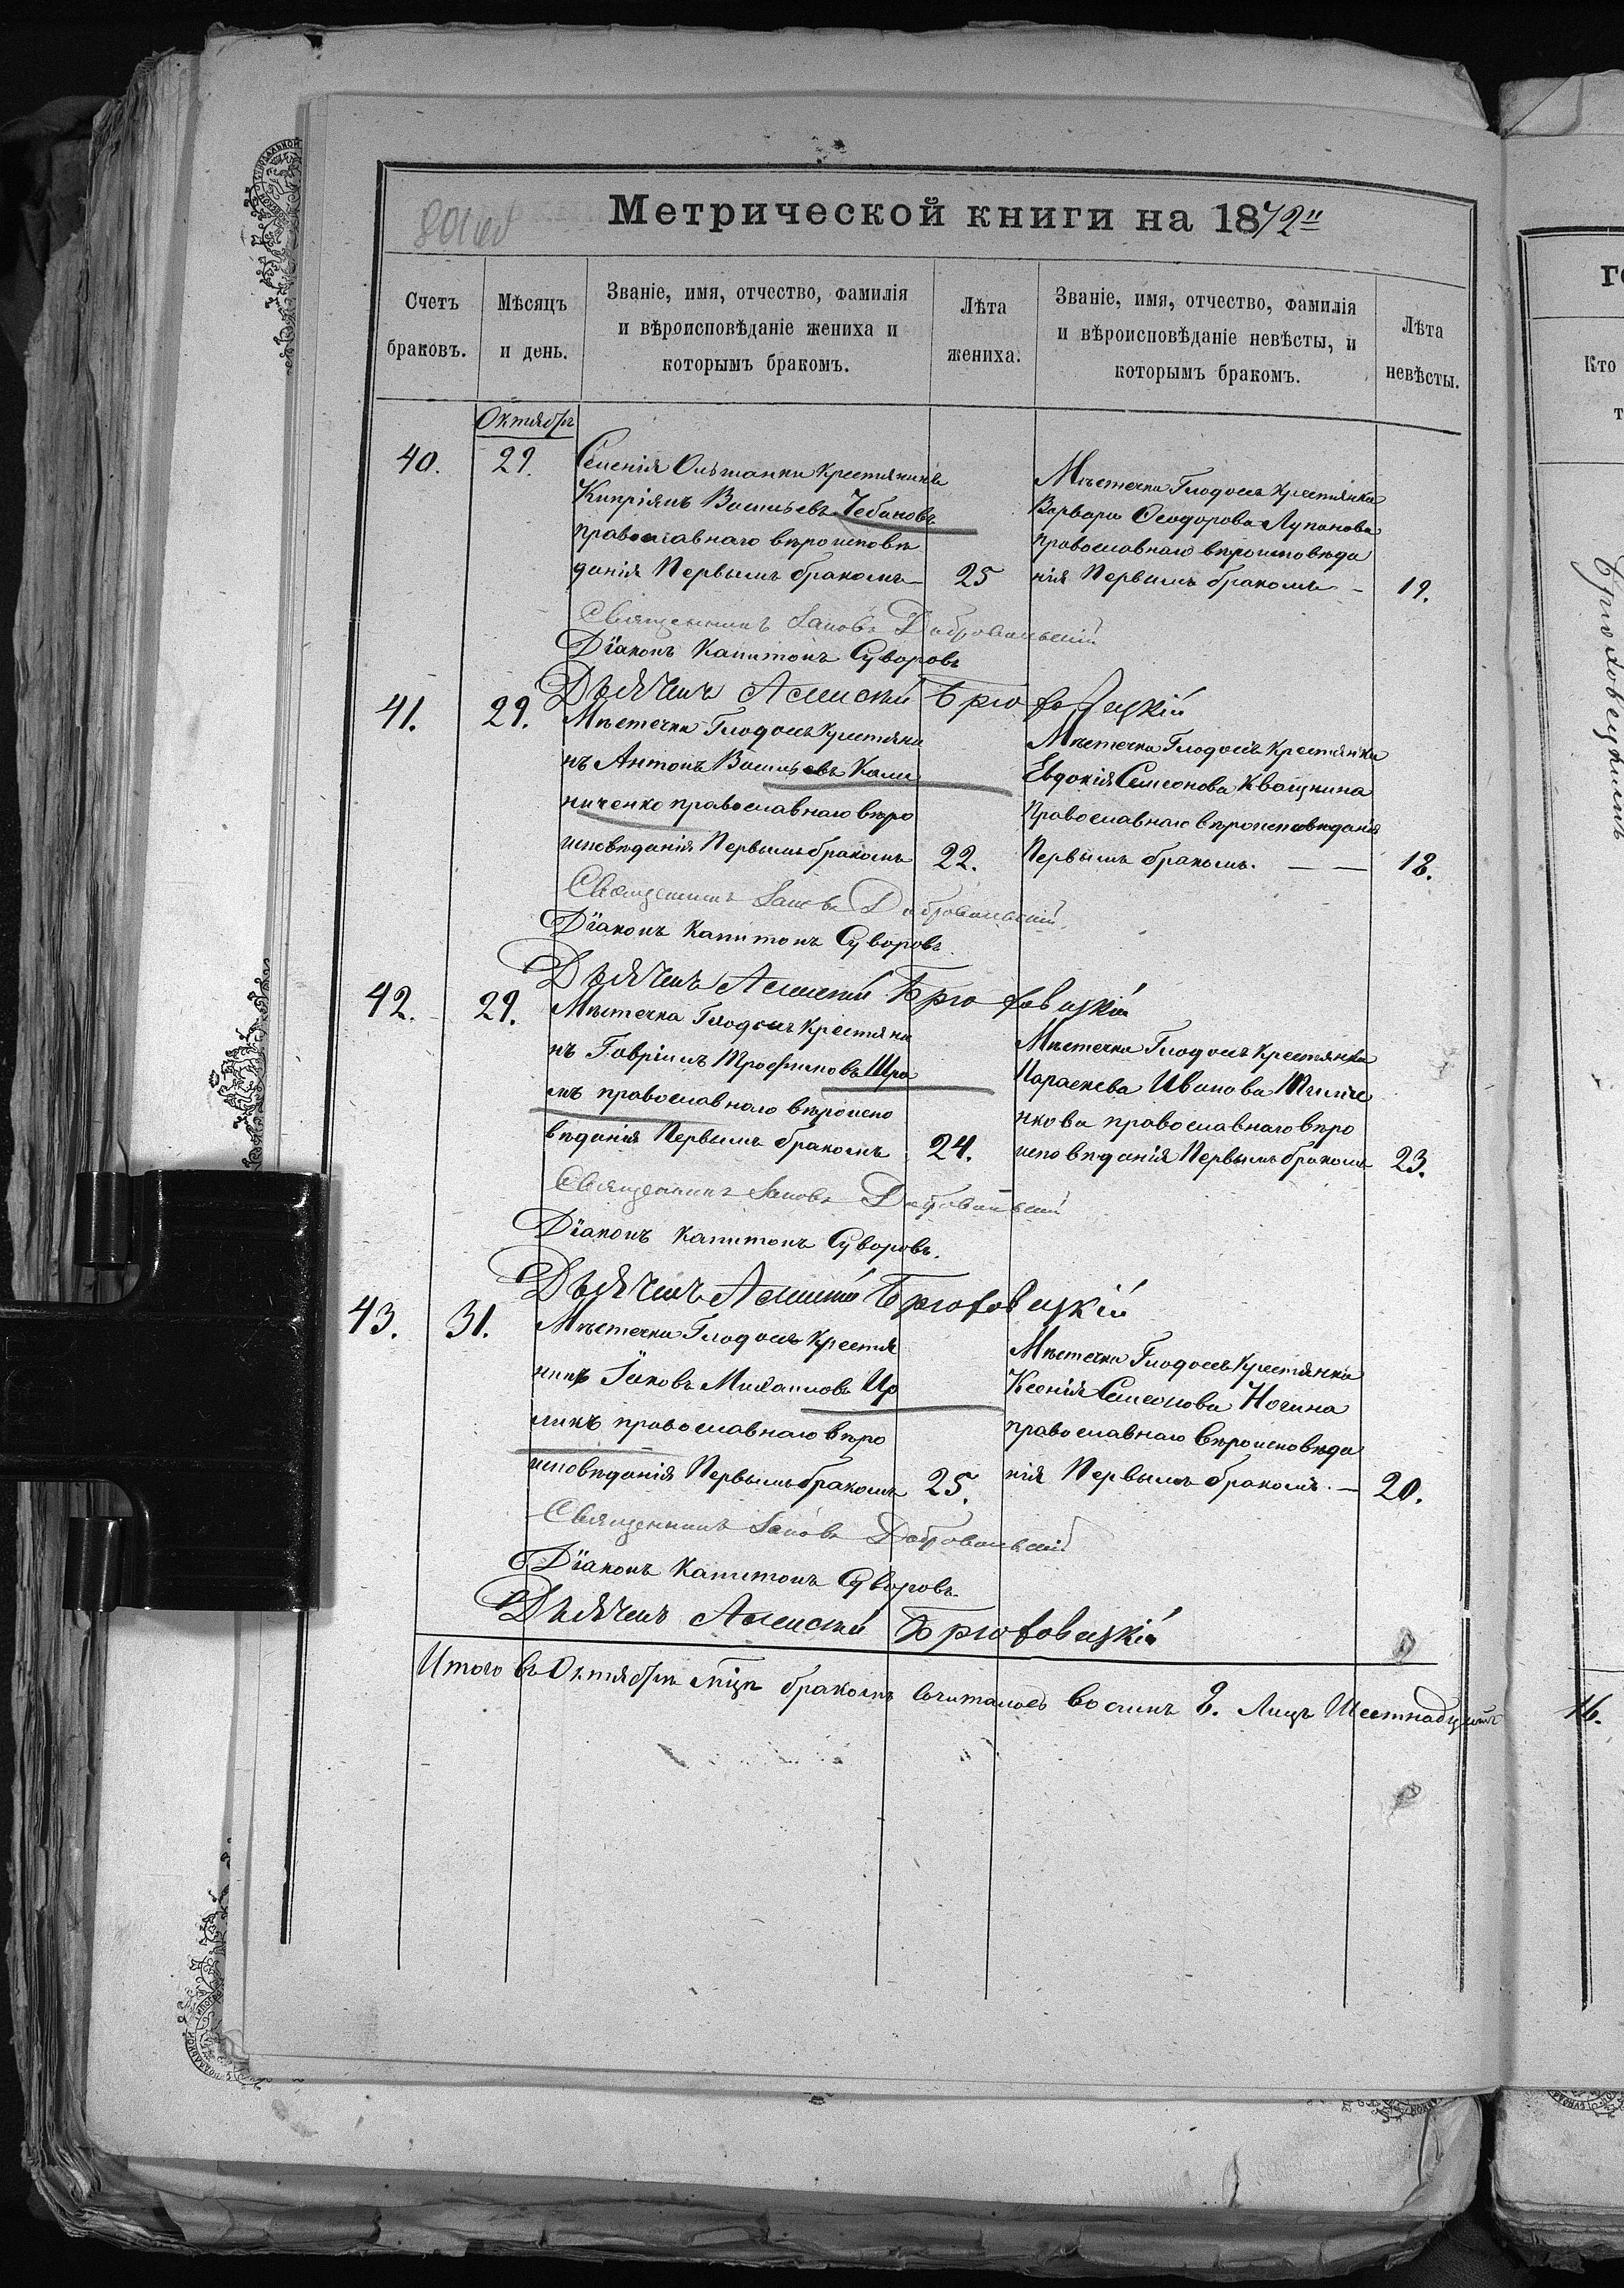 Метрической книги на 1872й
Счетъ браковъ.
Мѣсяцъ и день.
Званіе, имя, отчество, фамилія и вѣроисповѣданіе жениха и которымъ бракомъ.
Лѣта жениха.
Званіе, имя, отчество, фамилія и вѣроисповѣданіе невѣсты, и которымъ бракомъ.
Лѣта невѣсты.
Октябрь
40.
29.
Селенія Ольшанки крестянинъ
Кипріянъ Васильевъ Чебановъ
православнаго вѣроисповѣ
данія Первымъ бракомъ
25
Мѣстечка Глодосъ крестянка
Варвара Ѳеодорова Лупанова
православнаго вѣроисповѣда
нія Первымъ бракомъ –
19.
Священникъ Іаковъ Добровольскій
Діаконъ Капитонъ Суворовъ
Дьячекъ Алексѣй Брюховецкій
41.
29.
Мѣстечка Глодосъ крестяни
нъ Антонъ Васильевъ Кали
ниченко православнаго вѣро
исповѣданія Первымъ бракомъ
22.
Мѣстечка Глодосъ крестянка
Евдокія Симеонова Кващнина
Православнаго вѣроисповѣданія
Первымъ бракомъ. — —
18.
Священникъ Іаковъ Добровольскій
Діаконъ Капитонъ Суворовъ
Дьячекъ Алексѣй Брюховецкій
42.
29.
Мѣстечка Глодосъ крестяни
нъ Гавріилъ Трофимовъ Шра
мъ православнаго вѣроиспо
вѣданія Первымъ бракомъ
24.
Мѣстечка Глодосъ крестянка
Параскева Иванова
нкова православнаго вѣро
исповѣданія Первымъ бракомъ
23.
Священникъ Іаковъ Добровольскій
Діаконъ Капитонъ Суворовъ.
Дьячекъ Алексѣй Брюховецкій
43.
31.
Мѣстечка Глодосъ крестя
нинъ Іаковъ Михаиловъ
православнаго вѣро
исповѣданія Первымъ бракомъ
25.
Мѣстечка Глодосъ крестянка
Ксенія Симеонова Ногина
православнаго вѣроисповѣда
нія Первымъ бракомъ. —
20.
Священникъ Іаковъ Добровольскій
Діаконъ Капитонъ Суворовъ
Дьячекъ Алексѣй Брюховецкій
Итого въ Октябрѣ мцѣ бракомъ сочиталось восемь 8. Лицъ Шестнадцать
16.